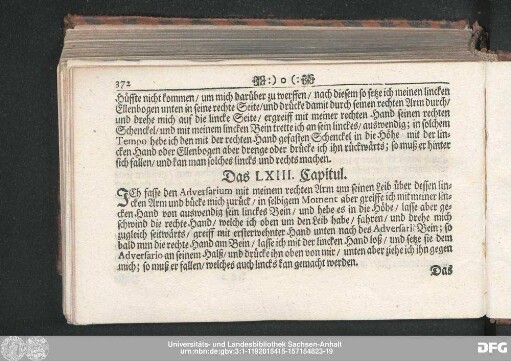 372 :) o (:
Hüffte nicht kommen/ um mich darüber zu werffen/ nach diesem so setze ich meinen lincken
Ellenbogen unten in seine rechte Seite/und drücke damit durch seinen rechten Arm durch/
und drehe mich auf die lincke Seite/ ergreiff mit meiner rechten Hand seinen rechten
Schenckel/und mit meinem lincken Bein trette ich an sein linckes/ auswendig; in solchem
Tempo hebe ich den mit der rechten Hand gefasten Schenckel in die Höhe mit der lin-
cken Hand oder Ellenbogen aber drenge oder drücke ich ihn rückwärts; so muß er hinter
sich fallen/ und kan man solches lincks und rechts machen.
Das LXIII. Capitul.
ICh fasse den Adversarium mit meinem rechten Arm um seinen Leib über dessen lin-
cken Arm und bücke mich zurück/ in selbigem Moment aber greiffe ich mit meiner lin-
cken Hand von auswendig sein linckes Bein/ und hebe es in die Höhe/ lasse aber ge-
schwind die rechte Hand/ welche ich oben um den Leib habe/ fahren/ und drehe mich
zugleich seitwärts/ greiff mit ersterwehnter Hand unten nach des Adversarii Bein; so
bald nun die rechte Hand am Bein/ lasse ich mit der lincken Hand loß/ und setze sie dem
Adversario an seinem Halß/ und drücke ihn oben von mir/ unten aber ziehe ich ihn gegen
mich; so muß er fallen/ welches auch lincks kan gemacht werden.
Das
Universitäts- und Landesbibliothek Sachsen-Anhalt
urn:nbn:de:gbv:3:1-1192015415-157154623-19
DFG